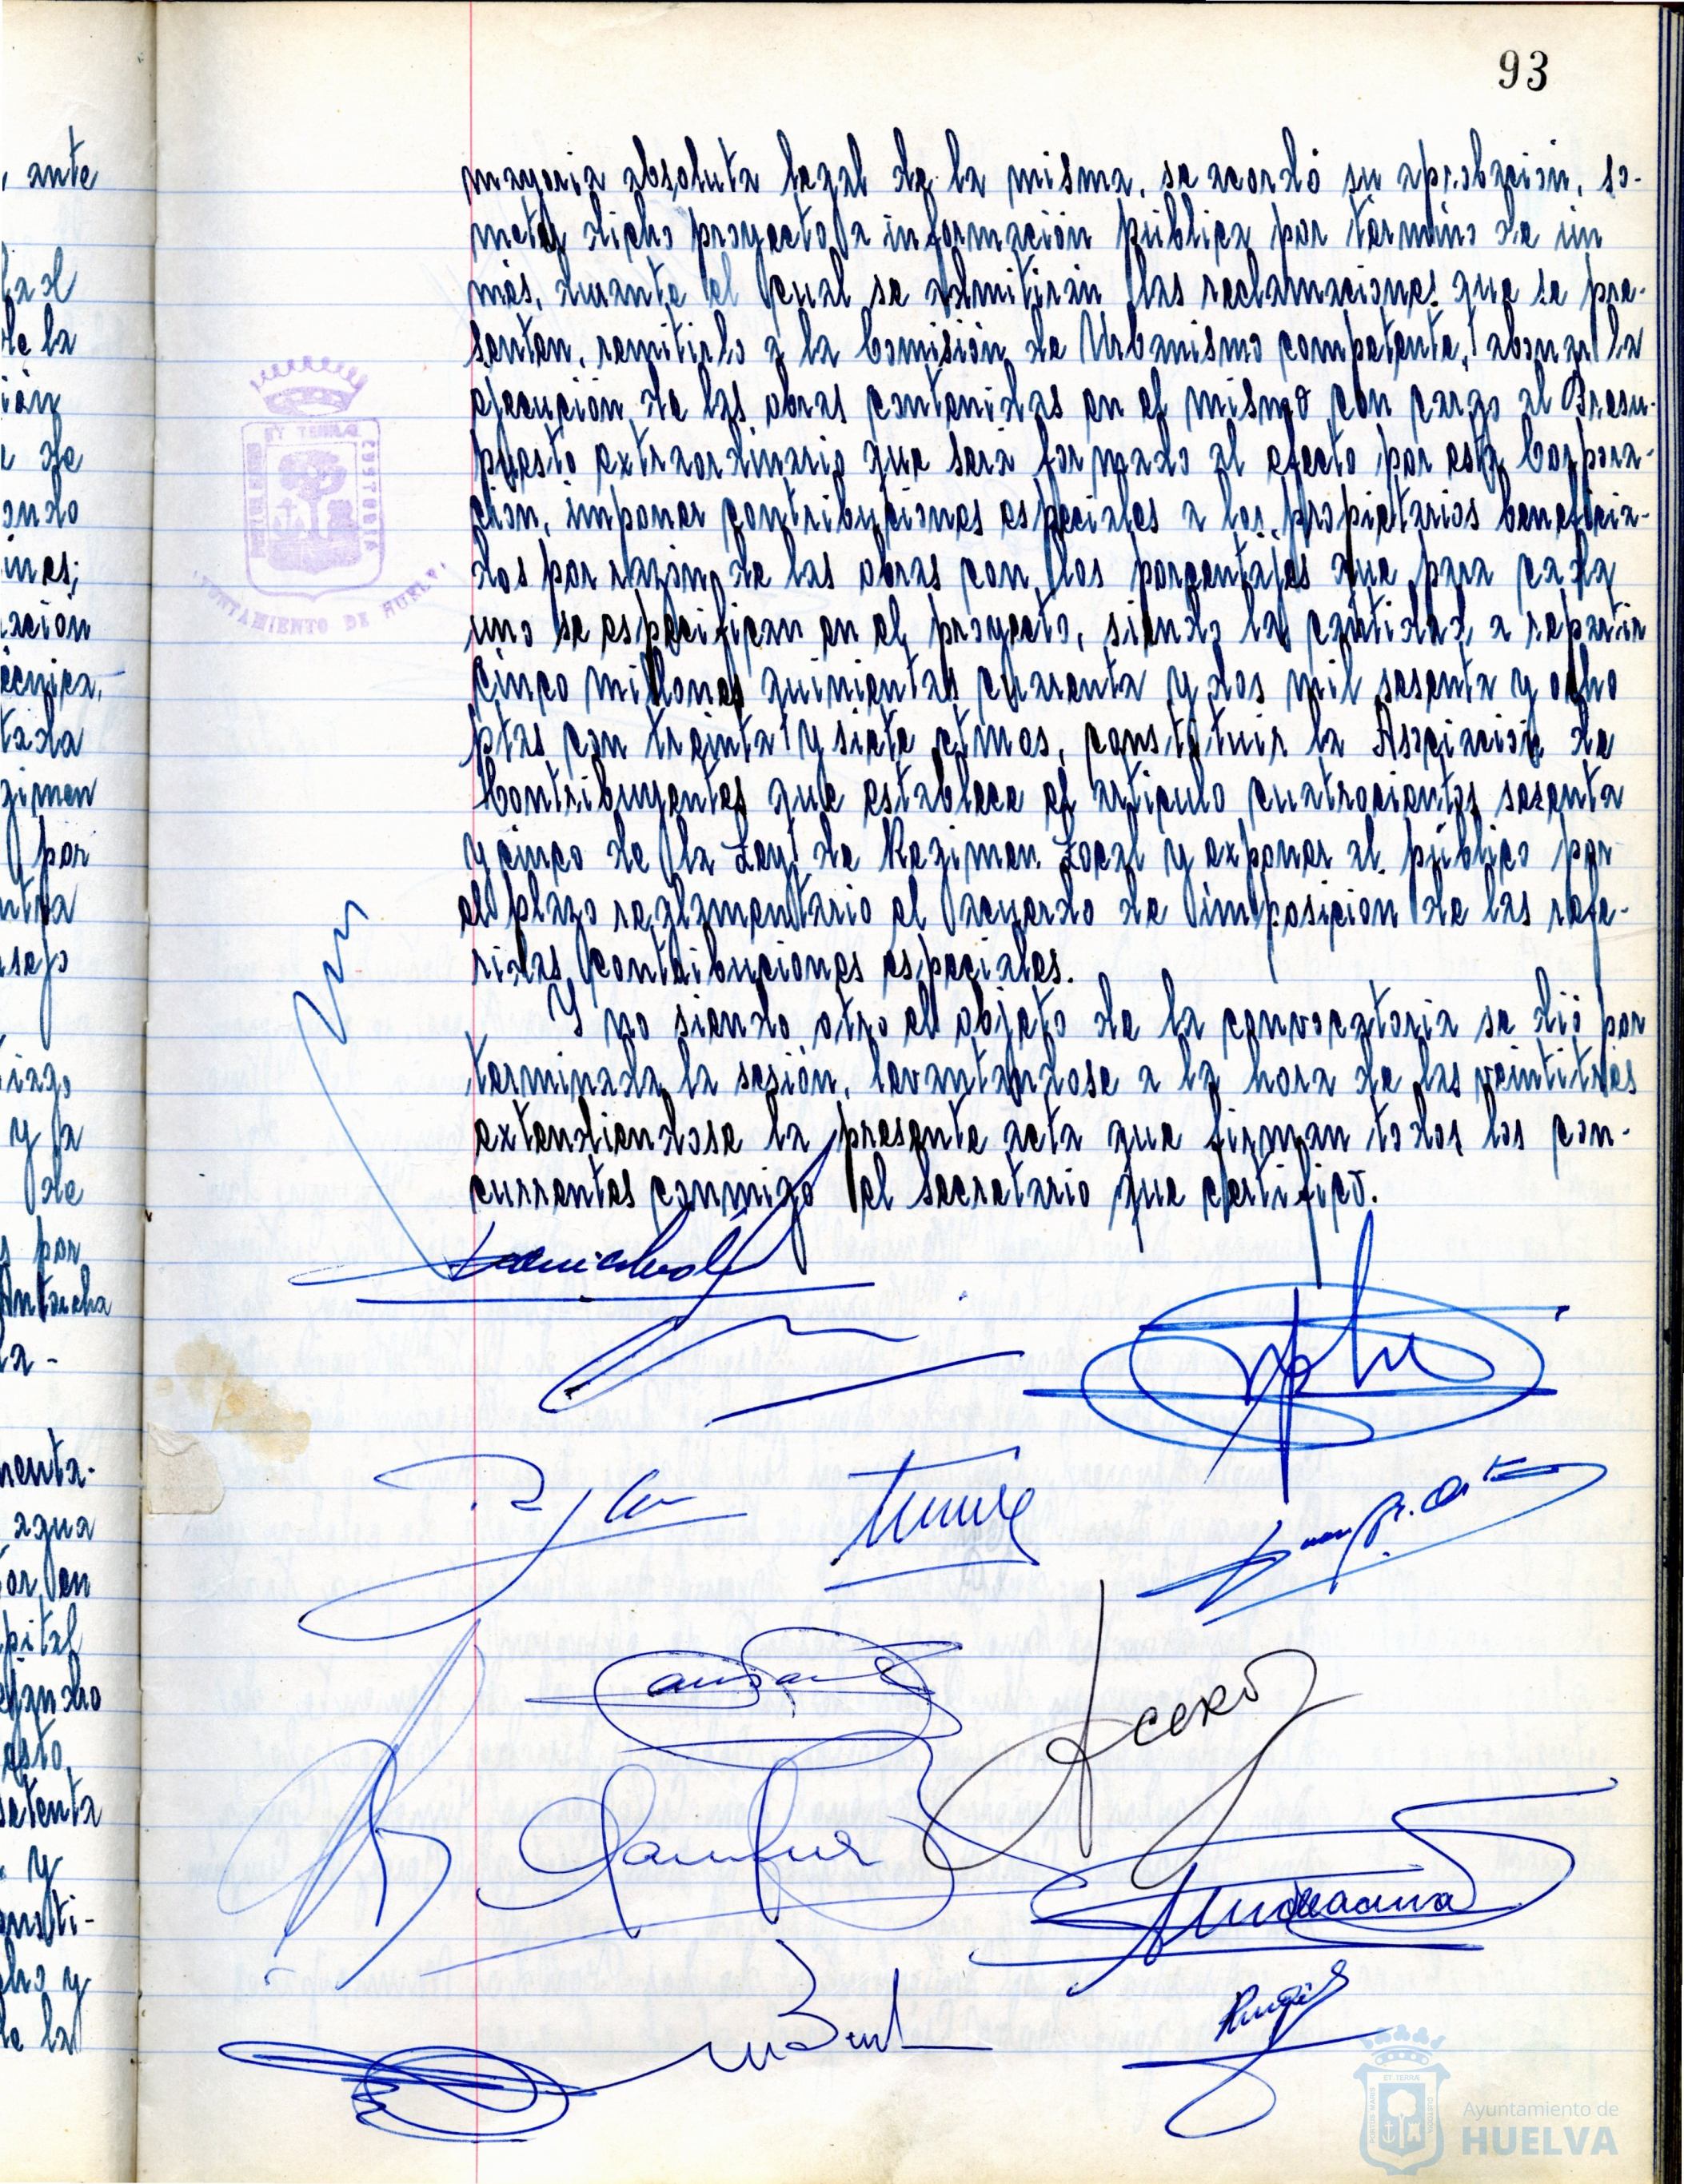 93
mayoria absoluta legal de la misma, se acordó su aprobación, so-
meter dicho proyecto a información pública por término de un
més, durante el cual se admitirán las reclamaciones que se pre-
senten, remitirlo a la Comisión de Urbanismo competente, abonar la
ejecución de las obras contenidas en el mismo con cargo al Presu-
puesto extraordinario que será formado al efecto por esta Corpora-
ción, imponer contribuciones especiales a los propietarios beneficia-
dos por razón de las obras con los porcentajes que para cada
uno se especifican en el proyecto, siendo la cantidad a repartir
cinco millones quinientas cuarenta y dos mil sesenta y ocho
ptas con treinta y siete ctmos, constituir la Asociación de
Contribuyentes que establece el artículo cuatrocientos sesenta
y cinco de la Ley de Regimen Local y exponer al público por
el plazo reglamentario el acuerdo de imposicion de las refe-
ridas contribuciones especiales.
Y no siendo otro el objeto de la convocatoria se dió por
terminada la sesión, levantandose a la hora de las veintitrés
extendiendose la presente acta que firman todos los con-
currentes conmigo el secretario que certifico.
, ante
de la
ción
de
ando
ines;
ación
écnica,
tada
gimen
por
y la
de
s por
menta-
agua
or en
pital
setenta
y
de la
AYUNTAMIENTO DE HUELVA
Acero
Ayuntamiento de
HUELVA